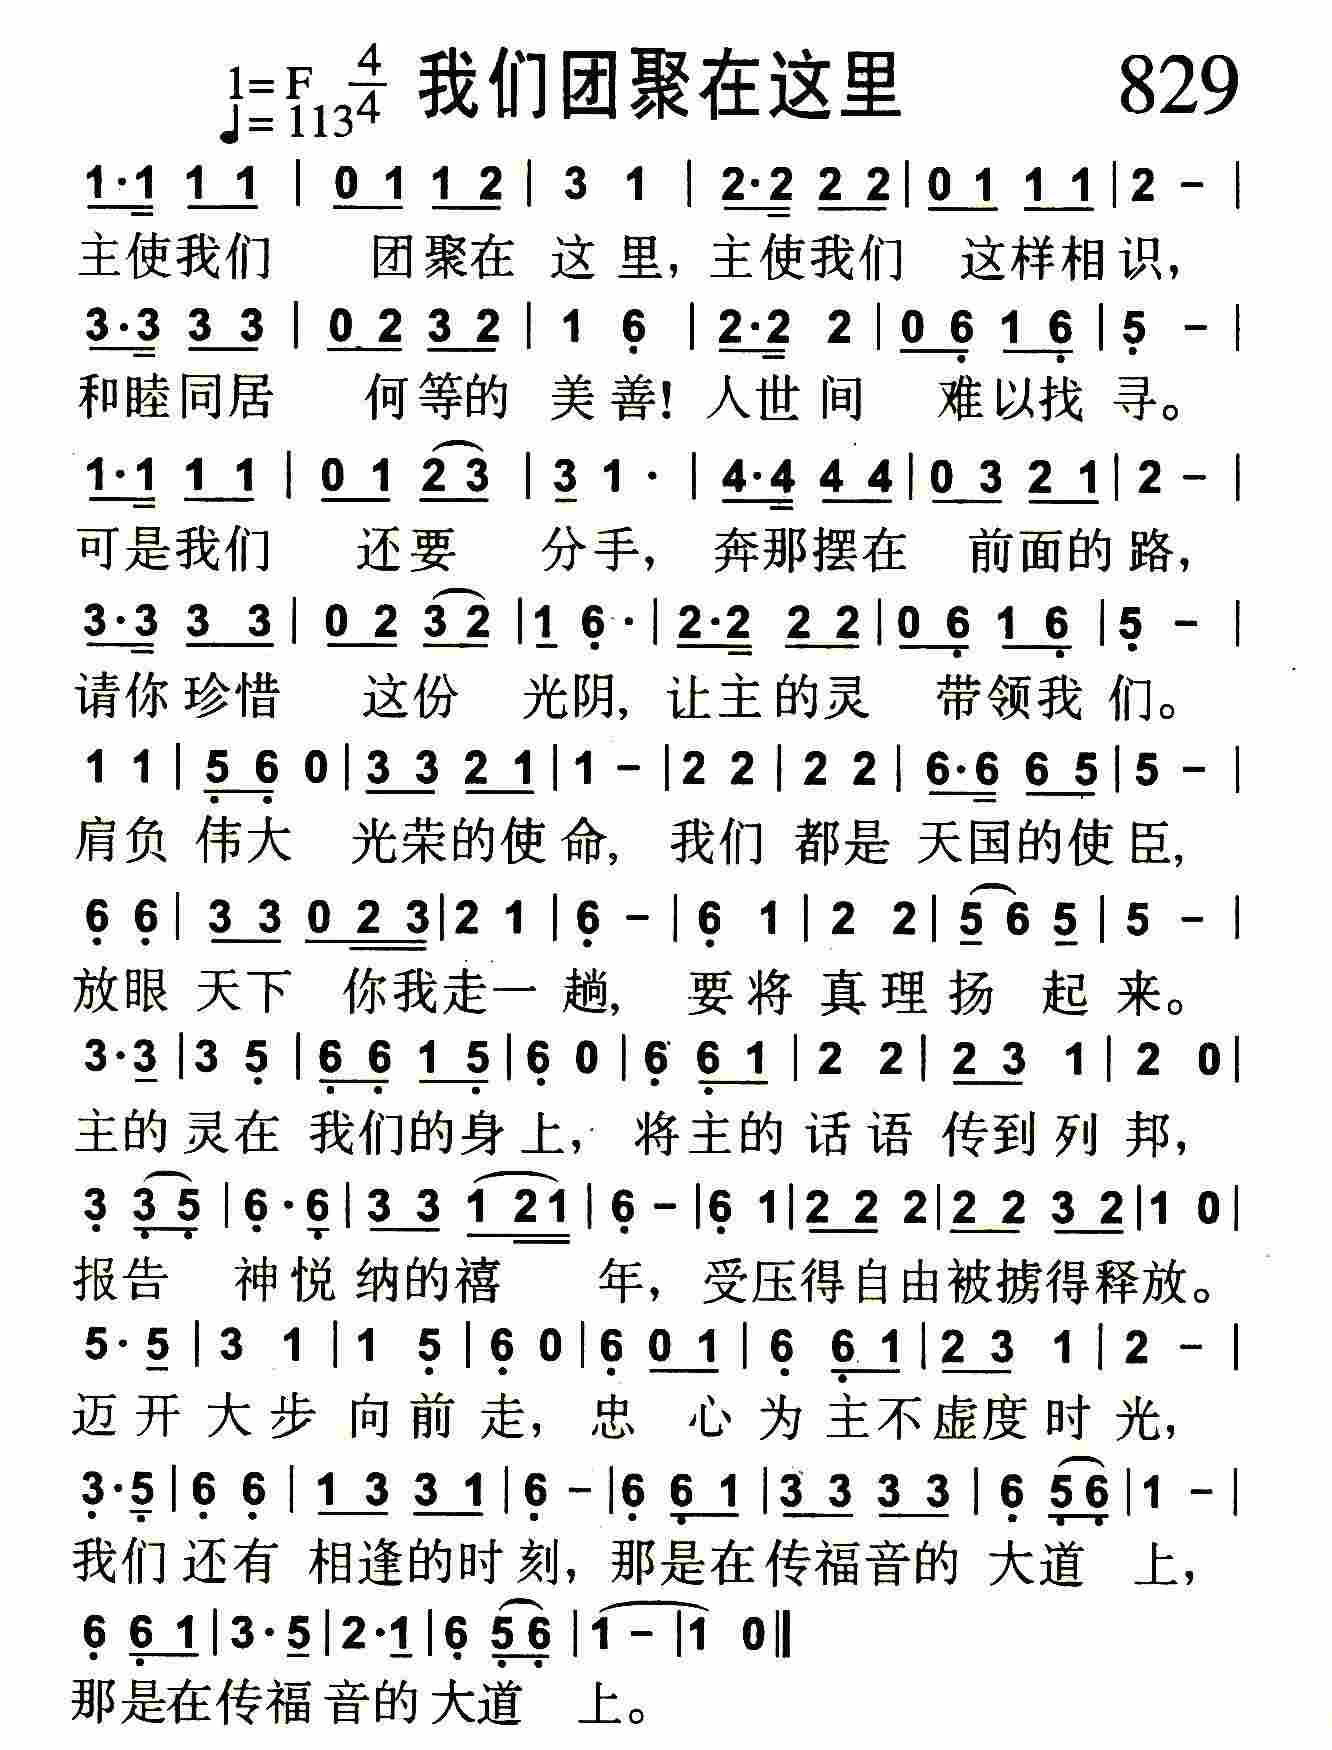 1=F 4/4 我们团聚在这里 829
♩=113
1·1 1 1 | 0 1 1 2 | 3 1 | 2·2 2 2 | 0 1 1 1 | 2 – |
主使我们 团聚在 这里，主使我们 这样相识，
3·3 3 3 | 0 2 3 2 | 1 6̣ | 2·2 2 | 0 6̣ 1 6̣ | 5̣ – |
和睦同居 何等的 美善！人世间 难以找寻。
1·1 1 1 | 0 1 2 3 | 3 1· | 4·4 4 4 | 0 3 2 1 | 2 – |
可是我们 还要 分手，奔那摆在 前面的路，
3·3 3 3 | 0 2 3 2 | 1 6̣· | 2·2 2 2 | 0 6̣ 1 6̣ | 5̣ – |
请你珍惜 这份 光阴，让主的灵 带领我们。
1 1 | 5̣ 6̣ 0 | 3 3 2 1 | 1 – | 2 2 | 2 2 | 6·6 6 5 | 5 – |
肩负 伟大 光荣的使命，我们 都是 天国的使臣，
6̣ 6̣ | 3 3 0 2 3 | 2 1 | 6̣ – | 6̣ 1 | 2 2 | 5̣ 6 5̣ | 5 – |
放眼 天下 你我走一趟，要将 真理扬 起来。
3·3 | 3 5̣ | 6̣ 6̣ 1 5̣ | 6̣ 0 | 6̣ 6̣ 1 | 2 2 | 2 3 1 | 2 0 |
主的灵在 我们的身上，将主的 话语 传到列邦，
3̣ 3̣ 5̣ | 6̣·6̣ | 3 3 1 2 1 | 6̣ – | 6̣ 1 | 2 2 2 | 2 2 3 2 | 1 0 |
报告 神悦纳的禧 年，受压得自由被掳得释放。
5·5 | 3 1 | 1 5̣ | 6̣ 0 | 6̣ 0 1 | 6̣ 6̣ 1 | 2 3 1 | 2 – |
迈开大步向前走，忠心为主不虚度时光，
3̣·5̣ | 6̣ 6̣ | 1 3 3 1 | 6̣ – | 6̣ 6̣ 1 | 3 3 3 3 | 6̣ 5̣ 6̣ | 1 – |
我们还有 相逢的时刻，那是在传福音的 大道 上，
6̣ 6̣ 1 | 3·5 | 2·1 | 6̣ 5̣ 6̣ | 1 – | 1 0 ‖
那是在传福音的大道 上。